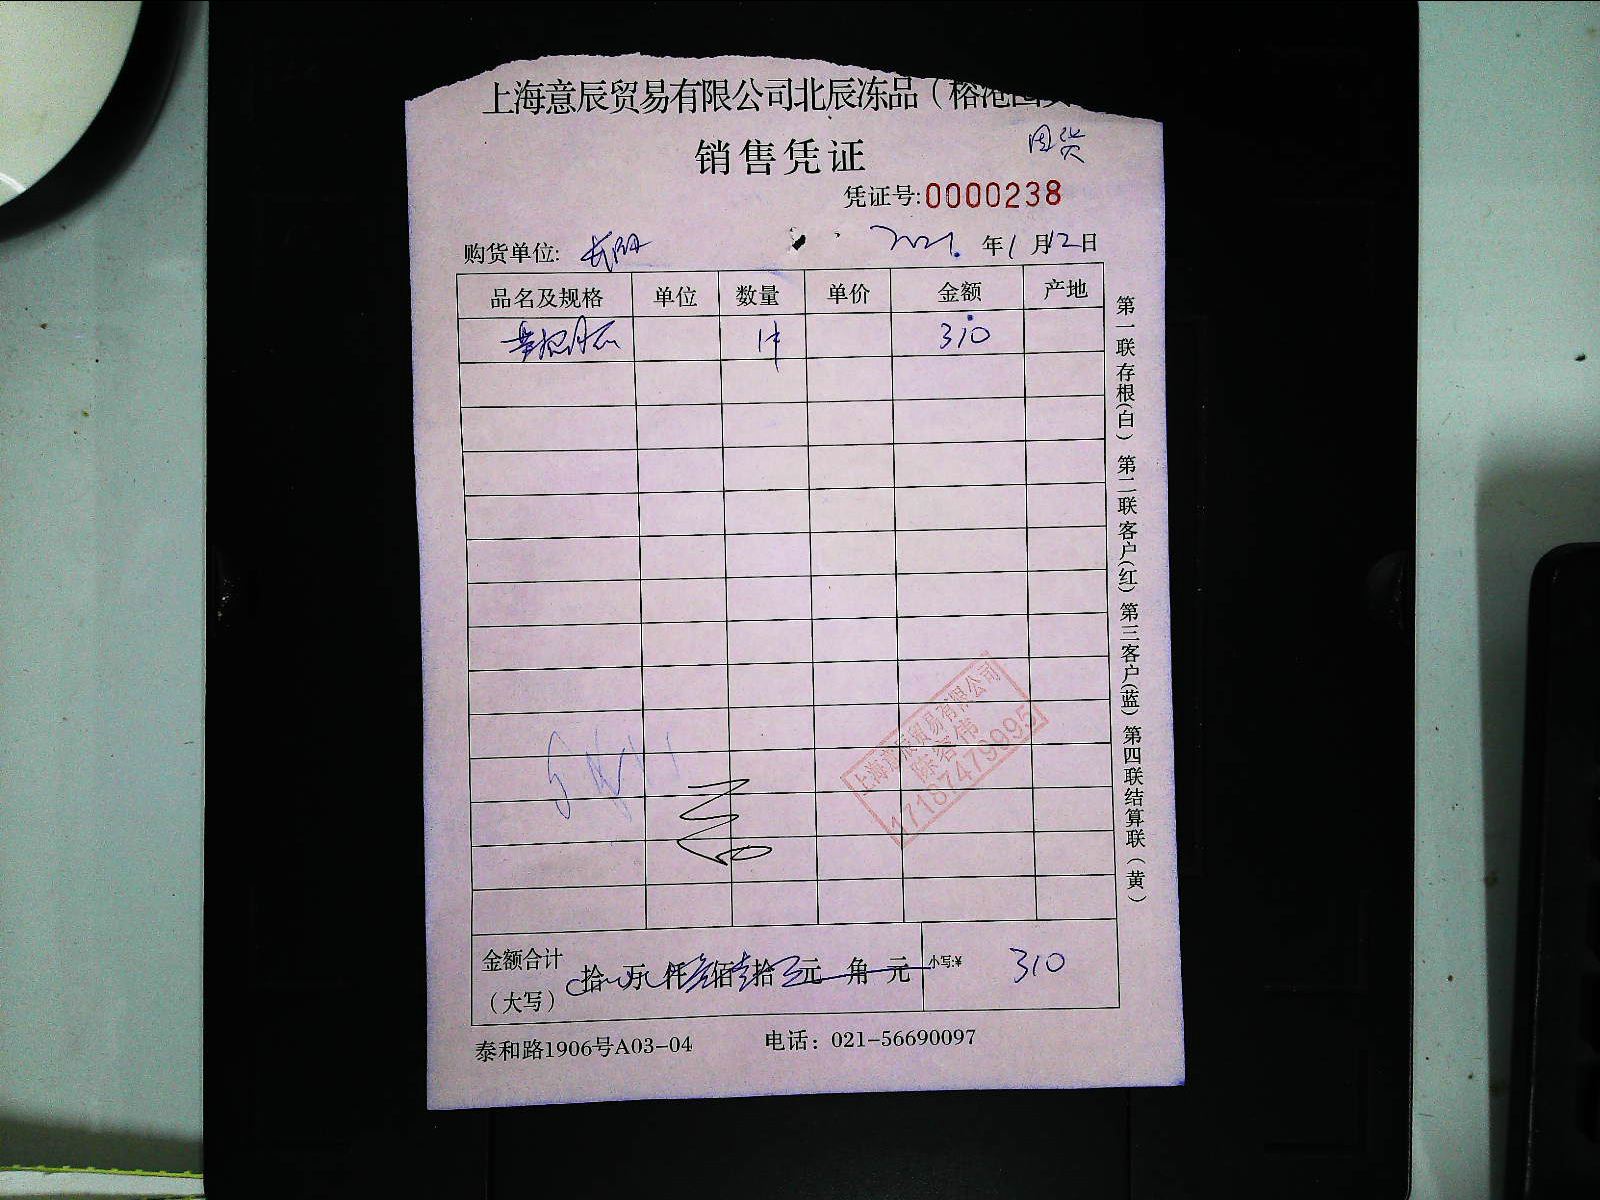 上海意辰贸易有限公司北辰冻品（榕港国
销售凭证
凭证号:0000238
购货单位:
2021. 年1月12日
品名及规格 单位 数量 单价 金额 产地
1件 310
上海意辰贸易有限公司
陈容伟
17187479995
金额合计（大写） 拾 万 仟叁佰壹拾 元 角 元 小写:¥ 310
泰和路1906号A03-04 电话：021-56690097
第一联存根(白) 第二联客户(红) 第三客户(蓝) 第四联结算联(黄)